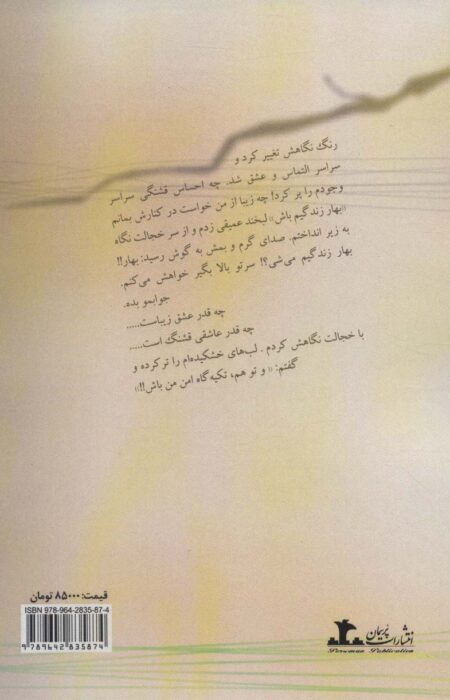 رنگ نگاهش تغییر کرد و
سراسر التماس و عشق شد. چه احساس قشنگی سراسر
وجودم را پر کرد! چه زیبا از من خواست در کنارش بمانم
«بهار زندگیم باش» لبخند عمیقی زدم و از سر خجالت نگاه
به زیر انداختم. صدای گرم و بمش به گوش رسید: بهار!!
بهار زندگیم می‌شی؟! سرتو بالا بگیر خواهش می‌کنم.
جوابمو بده.
چه قدر عشق زیباست.....
چه قدر عاشقی قشنگ است.....
با خجالت نگاهش کردم. لب‌های خشکیده‌ام را تر کرده و
گفتم: « و تو هم، تکیه‌گاه امن من باش!!»
قیمت: ۸۵۰۰۰ تومان
ISBN 978-964-2835-87-4
9789642835874
انتشارات پُرسمان
Porseman Publication